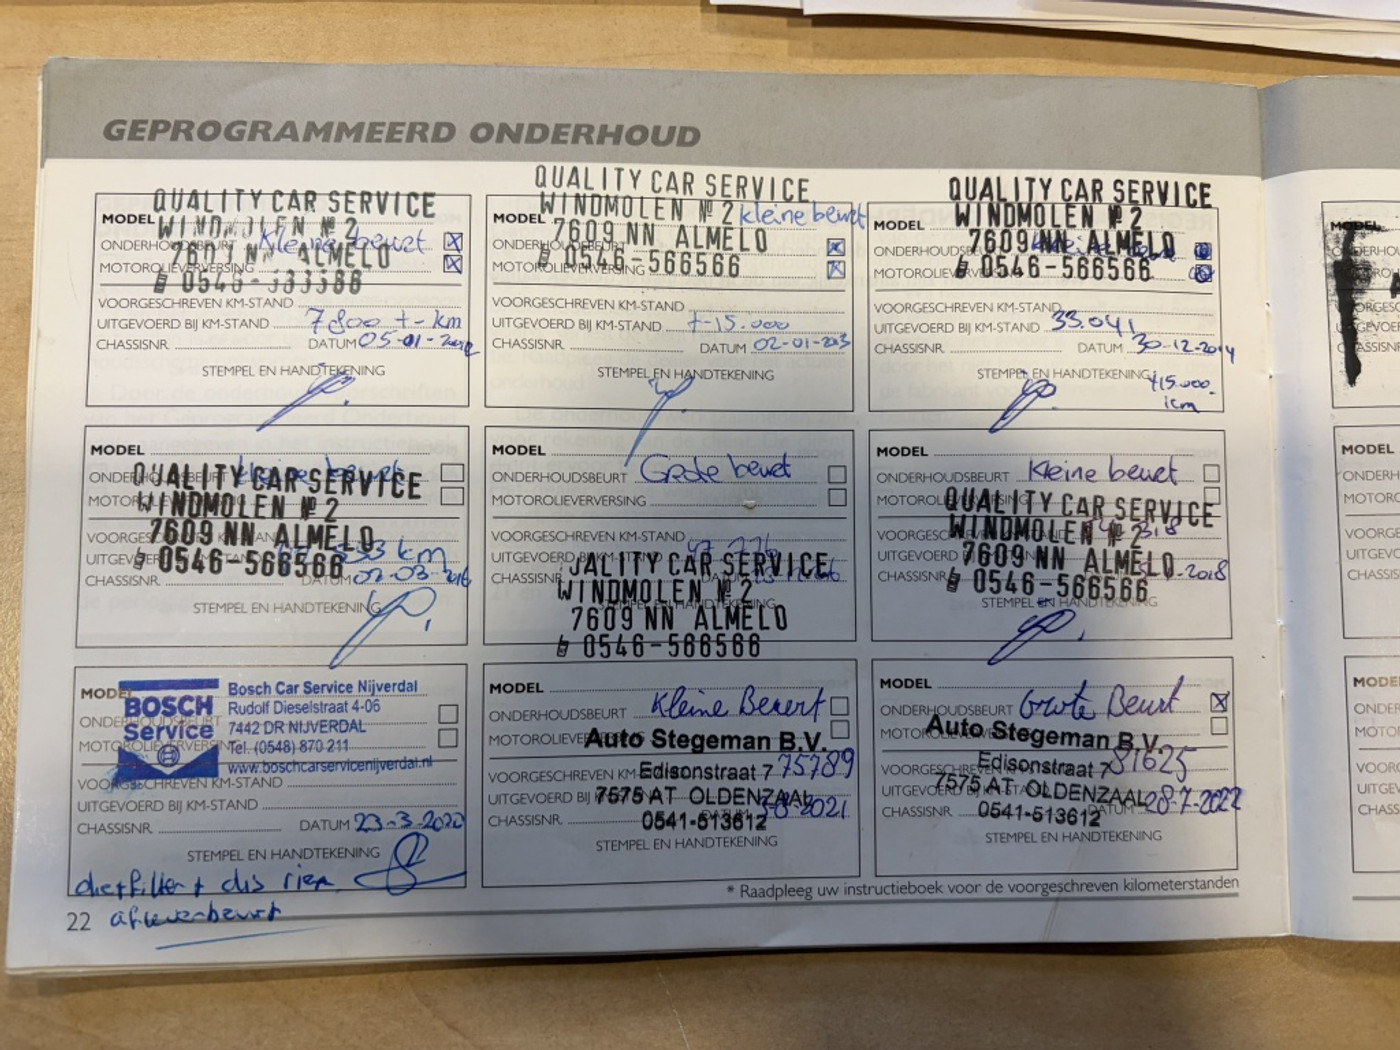 GEPROGRAMMEERD ONDERHOUD
QUALITY CAR SERVICE
WINDMOLEN № 2
7609 NN ALMELO
0546-
MODEL
ONDERHOUDSBEURT Kleine beurt
MOTOROLIEVERVERSING
VOORGESCHREVEN KM-STAND
UITGEVOERD BIJ KM-STAND 7800 +- km
CHASSISNR. DATUM 05-01-2012
STEMPEL EN HANDTEKENING
QUALITY CAR SERVICE
WINDMOLEN № 2 kleine beurt
7609 NN ALMELO
0546-566566
MODEL
ONDERHOUDSBEURT
MOTOROLIEVERVERSING
VOORGESCHREVEN KM-STAND
UITGEVOERD BIJ KM-STAND +-15.000
CHASSISNR. DATUM 02-01-2013
STEMPEL EN HANDTEKENING
QUALITY CAR SERVICE
WINDMOLEN № 2
7609 NN ALMELO
0546-566566
MODEL
ONDERHOUDSBEURT
MOTOROLIEVERVERSING
VOORGESCHREVEN KM-STAND
UITGEVOERD BIJ KM-STAND 33.041
CHASSISNR. DATUM 30-12-2014
STEMPEL EN HANDTEKENING +15.000
km
MODEL
ONDERHOUDSBEURT kleine beurt
QUALITY CAR SERVICE
WINDMOLEN № 2
7609 NN ALMELO
0546-566566
km
CHASSISNR. DATUM 02-03-2016
STEMPEL EN HANDTEKENING
MODEL
ONDERHOUDSBEURT Grote beurt
MOTOROLIEVERVERSING
VOORGESCHREVEN KM-STAND
UITGEVOERD BIJ KM-STAND 47 776
CHASSISNR.
UALITY CAR SERVICE
WINDMOLEN № 2
7609 NN ALMELO
0546-566566
STEMPEL EN HANDTEKENING
MODEL
ONDERHOUDSBEURT Kleine beurt
QUALITY CAR SERVICE
WINDMOLEN № 2
7609 NN ALMELO
0546-566566
CHASSISNR. -2018
STEMPEL EN HANDTEKENING
MODEL
BOSCH
Service
Bosch Car Service Nijverdal
Rudolf Dieselstraat 4-06
7442 DR NIJVERDAL
Tel. (0548) 870 211
www.boschcarservicenijverdal.nl
ONDERHOUDSBEURT
MOTOROLIEVERVERSING
VOORGESCHREVEN KM-STAND
UITGEVOERD BIJ KM-STAND
CHASSISNR. DATUM 23-3-2020
STEMPEL EN HANDTEKENING
afleverbeurt
MODEL
ONDERHOUDSBEURT Kleine Beurt
MOTOROLIEVERVERSING
Auto Stegeman B.V.
Edisonstraat 7
7575 AT OLDENZAAL
0541-513612
VOORGESCHREVEN KM-STAND 75789
UITGEVOERD BIJ KM-STAND
CHASSISNR. DATUM -8-2021
STEMPEL EN HANDTEKENING
MODEL
ONDERHOUDSBEURT Grote Beurt
MOTOROLIEVERVERSING
Auto Stegeman B.V.
Edisonstraat 7
7575 AT OLDENZAAL
0541-513612
VOORGESCHREVEN KM-STAND 81625
UITGEVOERD BIJ KM-STAND
CHASSISNR. DATUM 28-7-2022
STEMPEL EN HANDTEKENING
* Raadpleeg uw instructieboek voor de voorgeschreven kilometerstanden
22